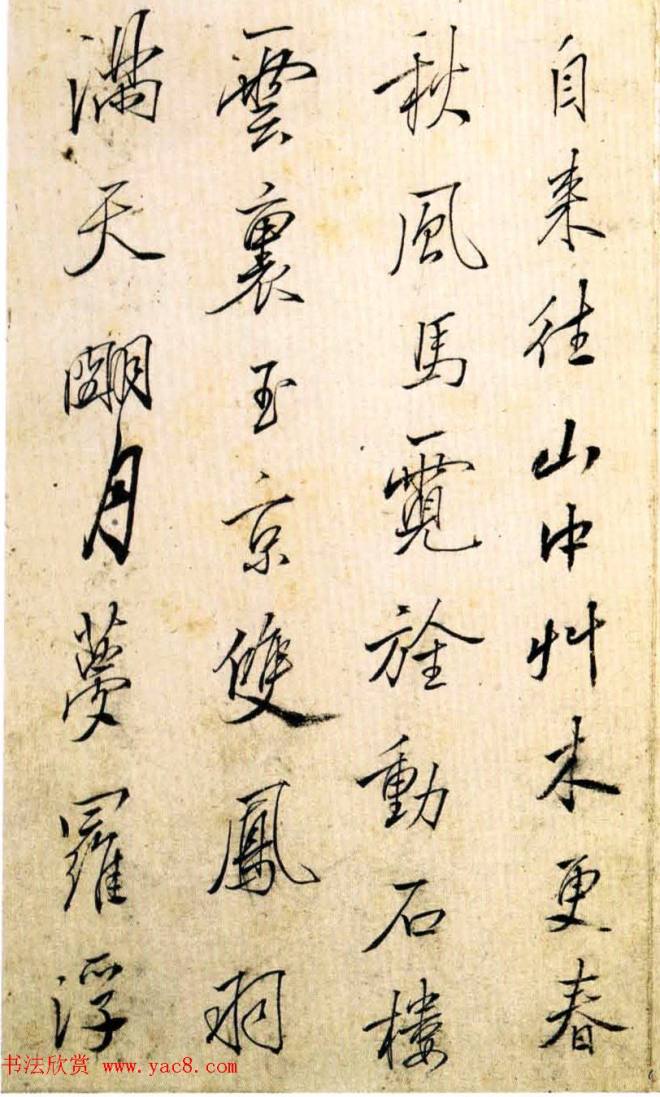 自来往山中艸木更春
秋風馬霓旌動石樓
雲裏玉京雙鳳羽
滿天朙月夢羅浮
书法欣赏 www.yac8.com